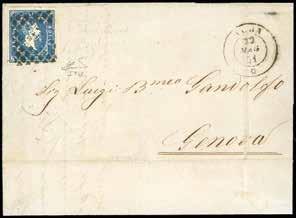 22
MAG
51
Sig Luigi Bmeo Gandolfo
Genova